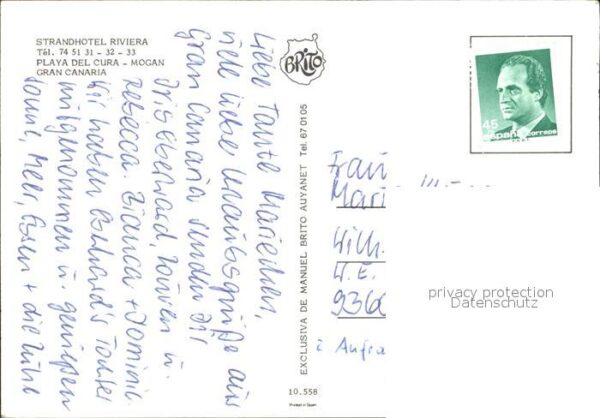 STRANDHOTEL RIVIERA
Tél. 74 51 31 - 32 - 33
PLAYA DEL CURA - MOGAN
GRAN CANARIA
BRITO
EXCLUSIVA DE MANUEL BRITO AUYANET Tel. 67 01 05
10.558
Printed in Spain
Liebe Tante Mariechen,
viele liebe Urlaubsgrüße aus
Gran Canaria senden Dir
Iris Eberhard, u.
Rebecca. Bianca + Dominic
Wir haben Eberhard's Tochter
mitgenommen u. genießen
Sonne, Meer, Essen + die Ruhe
45
España correos
Frau
Mari
Wilh
W.E.
privacy protection
Datenschutz